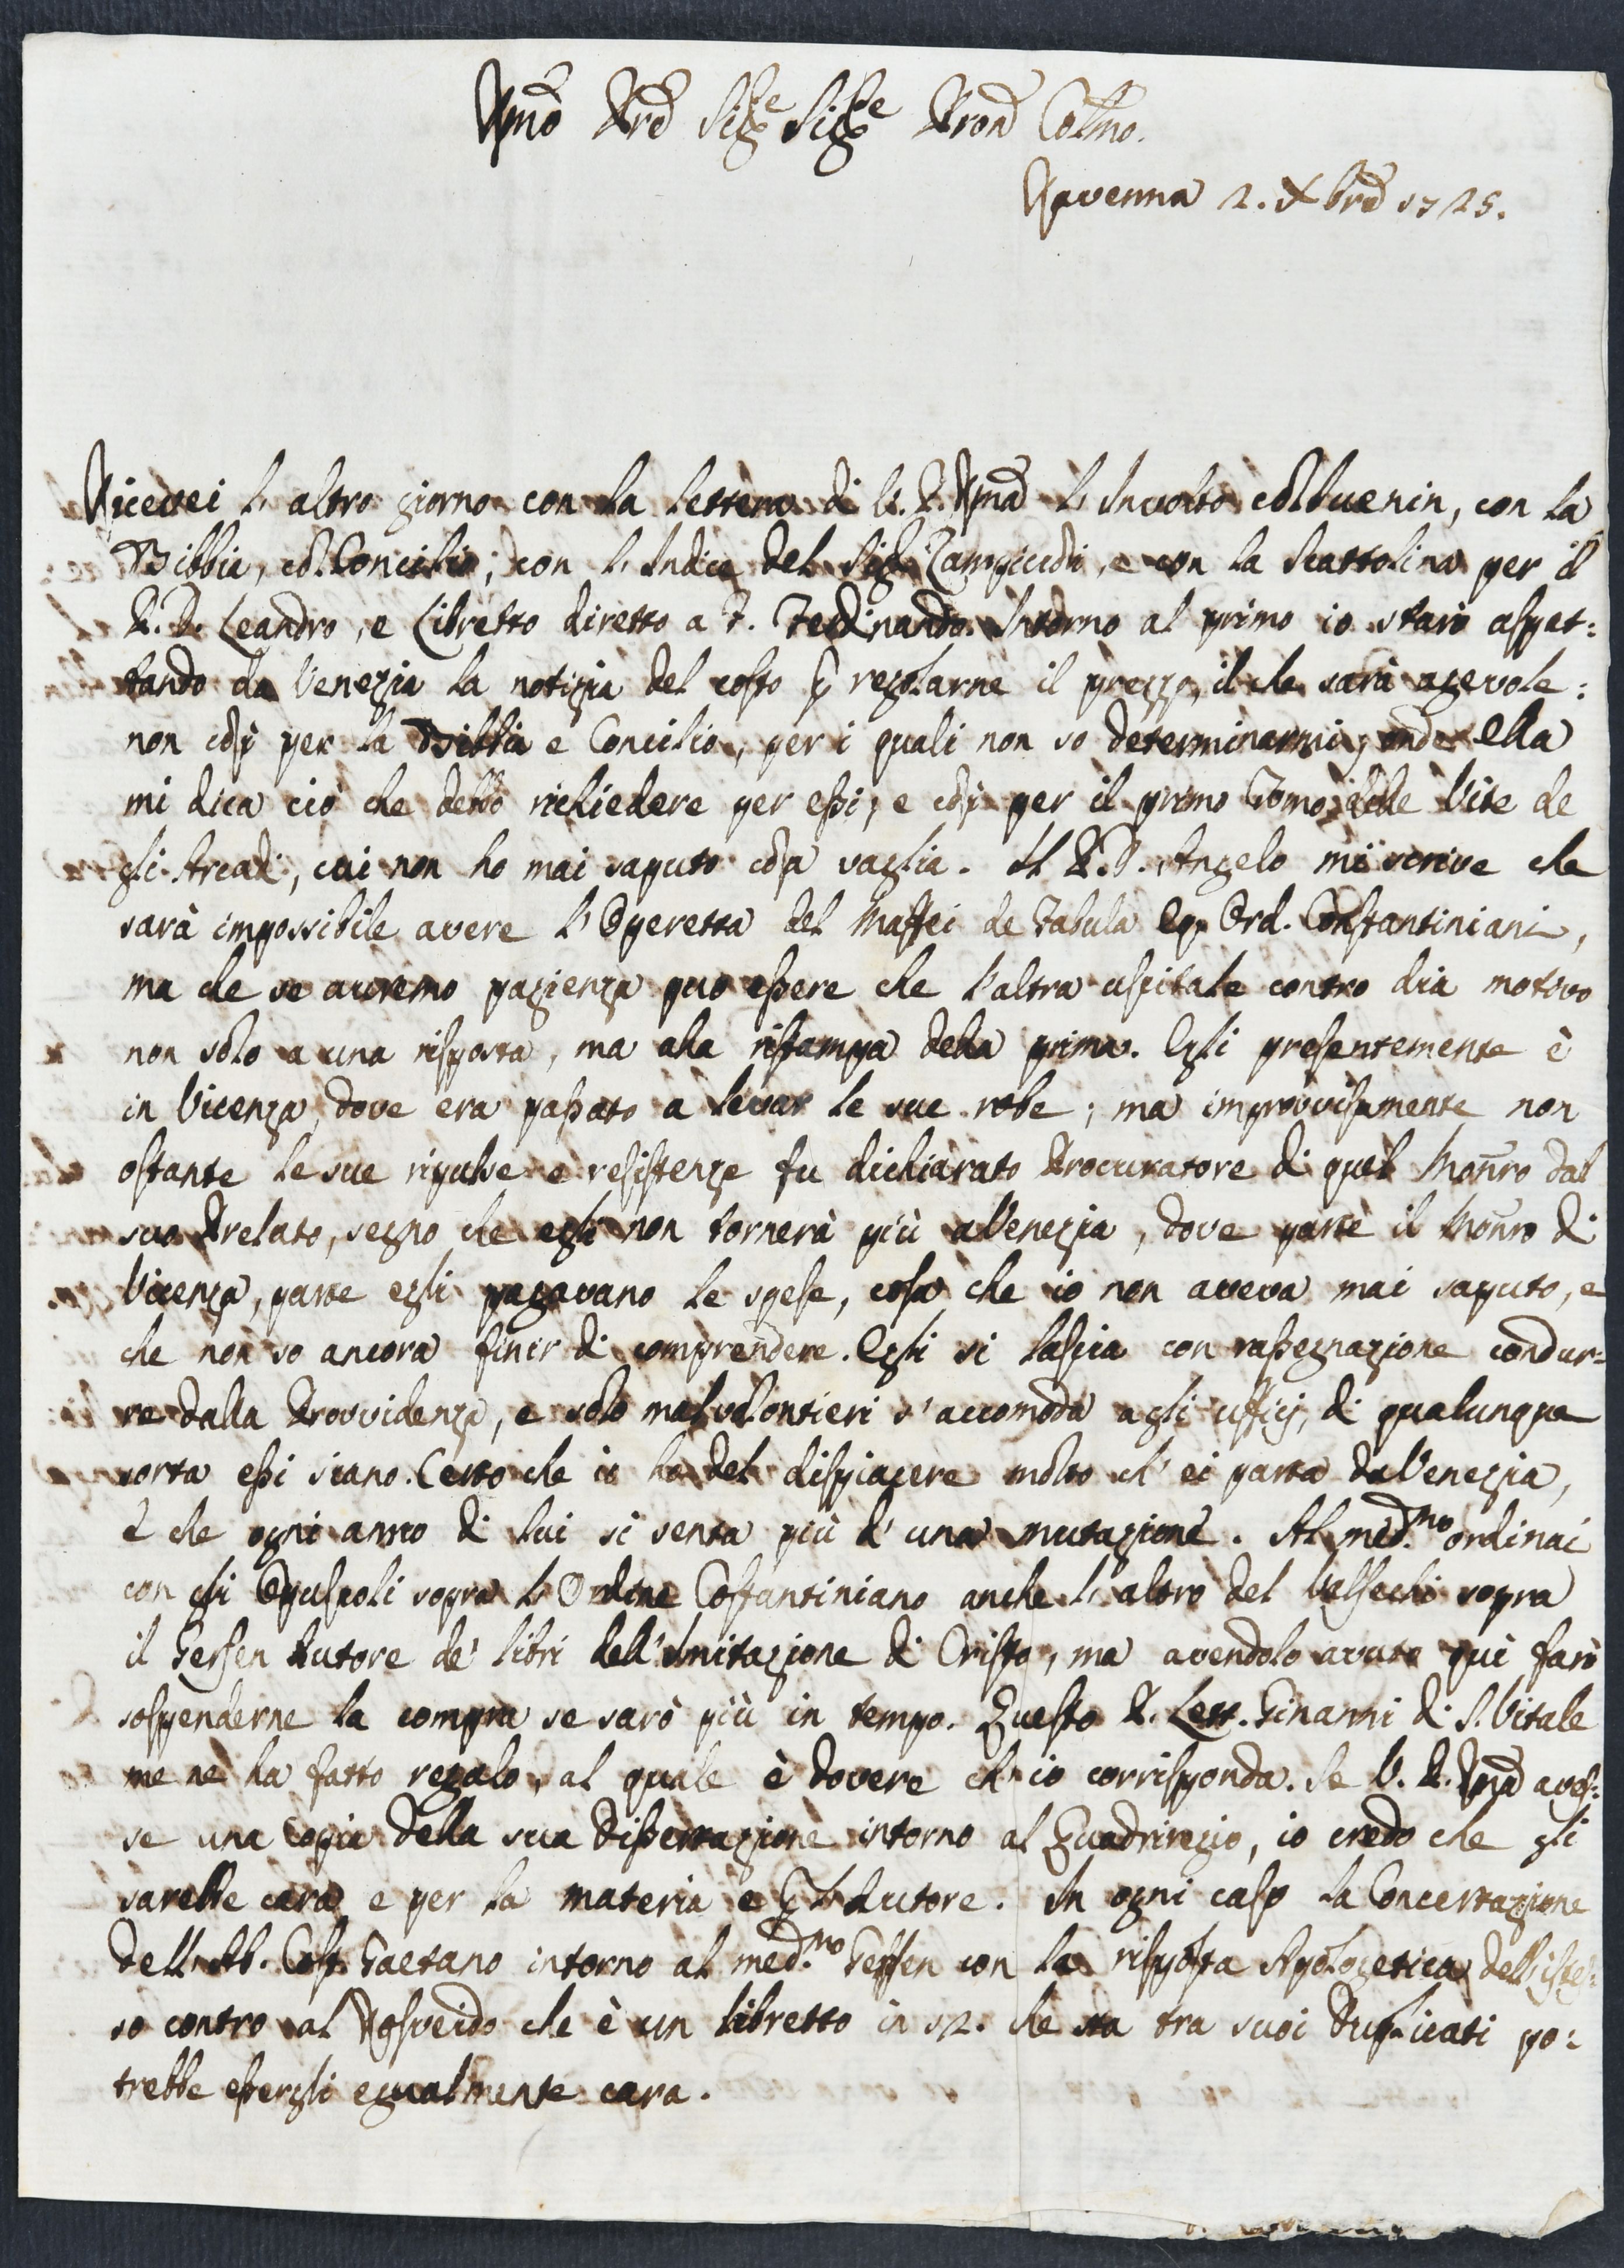 Rmo Pre Sigr Sigr Pron Colmo.
Ravenna 2. Xbre 1725.
Ricevei l'altro giorno con la lettera di V. P. Rma l'Involto col, con la
Bibbia, col Concilio; con l'Indice del Sigr Zampiccoli, e con la scattolina per il
P. D. Leandro, e Libretto diretto a F. Ferdinando. Intorno al primo io starò aspet:
tando da Venezia la notizia del costo p regolarne il prezzo, il che sarà agevole:
non così per la Bibbia e Concilio, per i quali non so determinarmi; onde ella
mi dica ciò che debbo richiedere per essi; e così per il primo Tomo delle Vite de
gli Arcadi, cui non ho mai saputo cosa vaglia. Il P. D. Angelo mi scrive che
sarà impossibile avere l'Operetta del Maffei de Fabula Eq. Ord. Constantiniani,
ma che se avremo pazienza può essere che l'altra uscitale contro dia motivo
non solo a una risposta, ma alla ristampa della prima. Egli presentemente è
in Vicenza, dove era passato a levar le sue robe; ma improvvisamente non
ostante le sue ripulse e resistenze fu dichiarato Procuratore di quel Monro dal
suo Prelato, segno che egli non tornerà più a Venezia, dove parte il Monro di
Vicenza, parte egli pagavano le spese, cosa che io non aveva mai saputo, e
che non so ancora finir di comprendere. Egli si lascia con rassegnazione condur=
re dalla Provvidenza, e solo mal volontieri s'accomoda agli ufficj, di qualunque
sorta essi siano. Certo che io ho del dispiacere molto ch'ei parta da Venezia,
e che ogni anno di lui si senta più d'una mutazione. Al med.mo ordinai
con gli Opuscoli sopra l'Ordine Costantiniano anche l'altro del Valsechi sopra
il Gersen Autore de' libri dell'Imitazione di Cristo, ma avendolo avuto qui farò
sospenderne la compra se sarò più in tempo. Questo P. Lett. Ginanni di S. Vitale
me ne ha fatto regalo, al quale è dovere ch'io corrisponda. Se V. P. Rma aves:
se una copia della sua Dissertazione intorno al Quadriregio, io credo che gli
sarebbe cara e per la materia e p l'Autore. In ogni caso la Concertazione
dell'Ab. Cost. Gaetano intorno al med.mo Gersen con la risposta Apologetica dell'istes:
so contro al Rosveido che è un libretto in 12. che sta tra suoi Duplicati po:
trebbe essergli egualmente cara.